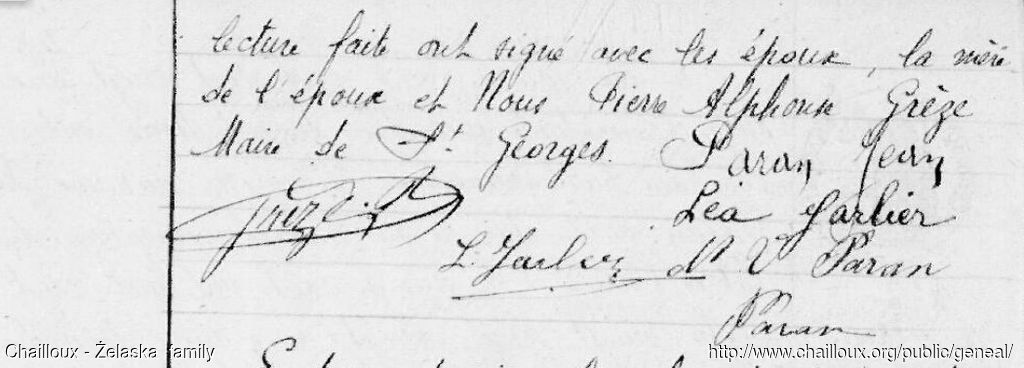 lecture faite ont signé avec les époux, la mère
de l'époux et Nous Pierre Alphonse Grèze
Maire de St Georges. Paran Jean
Grèze A.
Léa Jarlier
L. Jarlier Vve Paran
Paran
Chailloux - Żelaska family
http://www.chailloux.org/public/geneal/